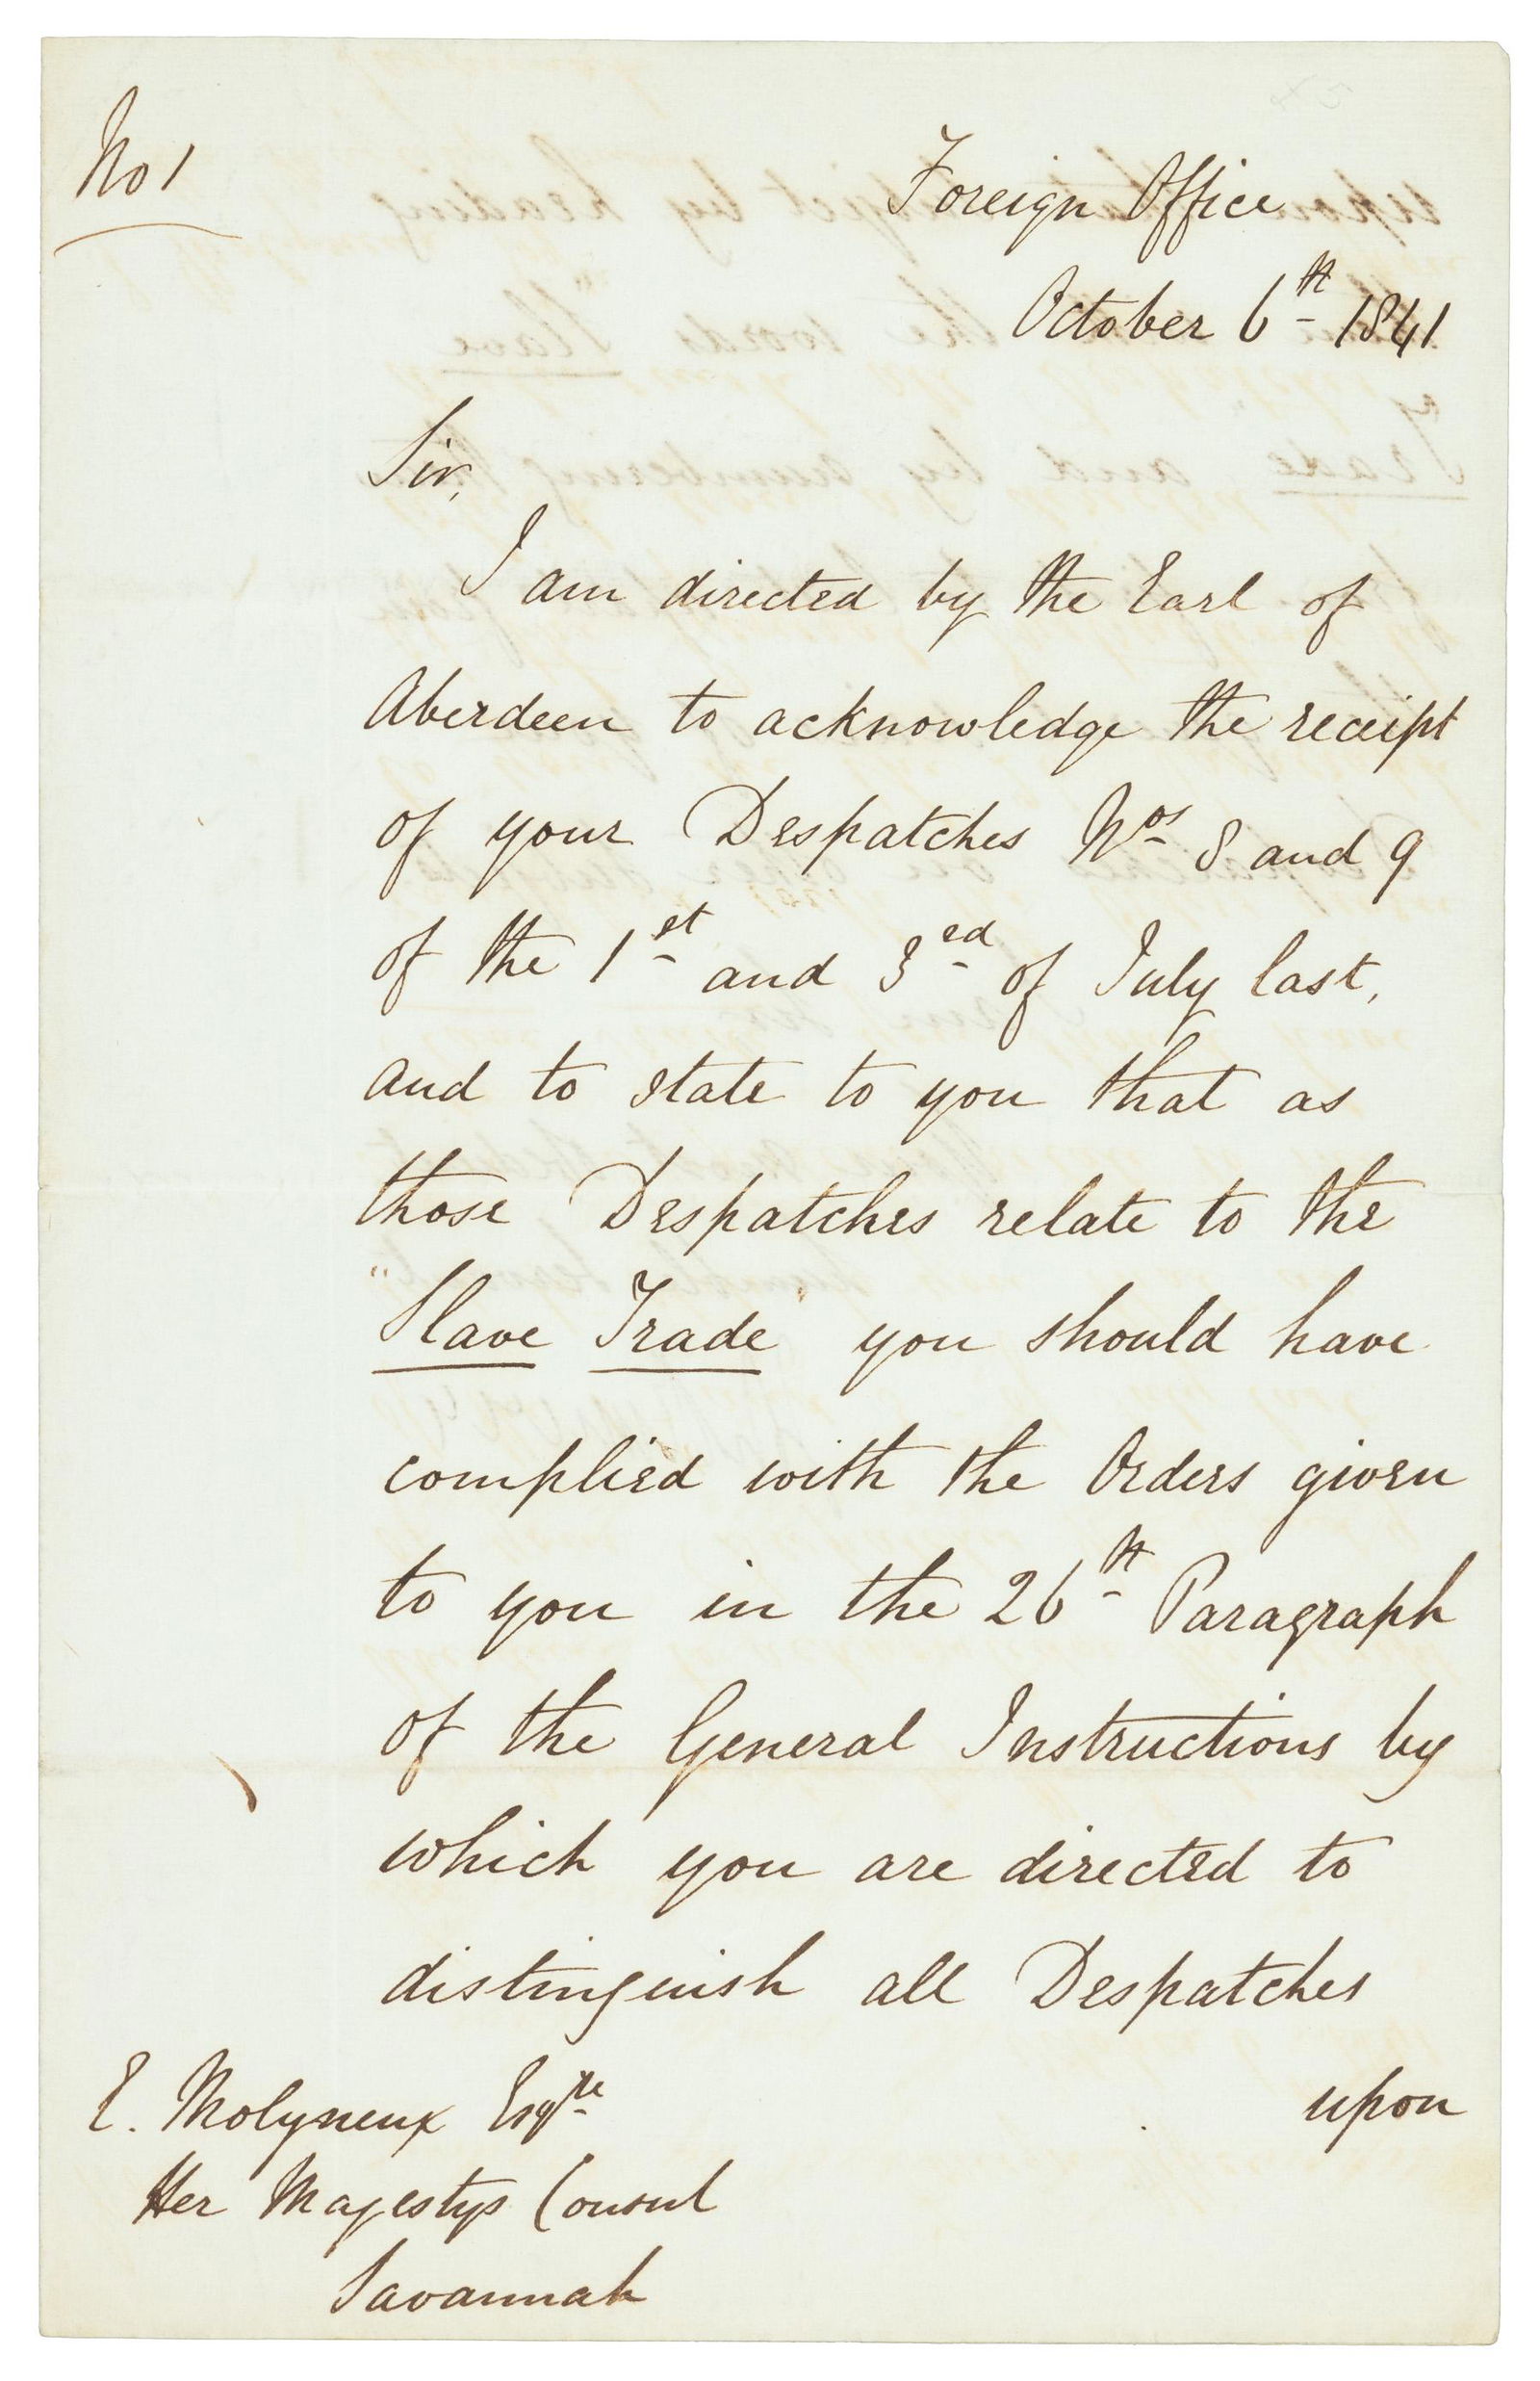 No 1
Foreign Office
October 6th 1841
Sir,
I am directed by the Earl of
Aberdeen to acknowledge the receipt
of your Despatches Nos 8 and 9
of the 1st and 3rd of July last,
and to state to you that as
those Despatches relate to the
"Slave Trade" you should have
complied with the Orders given
to you in the 26th Paragraph
of the General Instructions by
which you are directed to
distinguish all Despatches
upon
E. Molyneux Esqre
Her Majestys Consul
Savannah